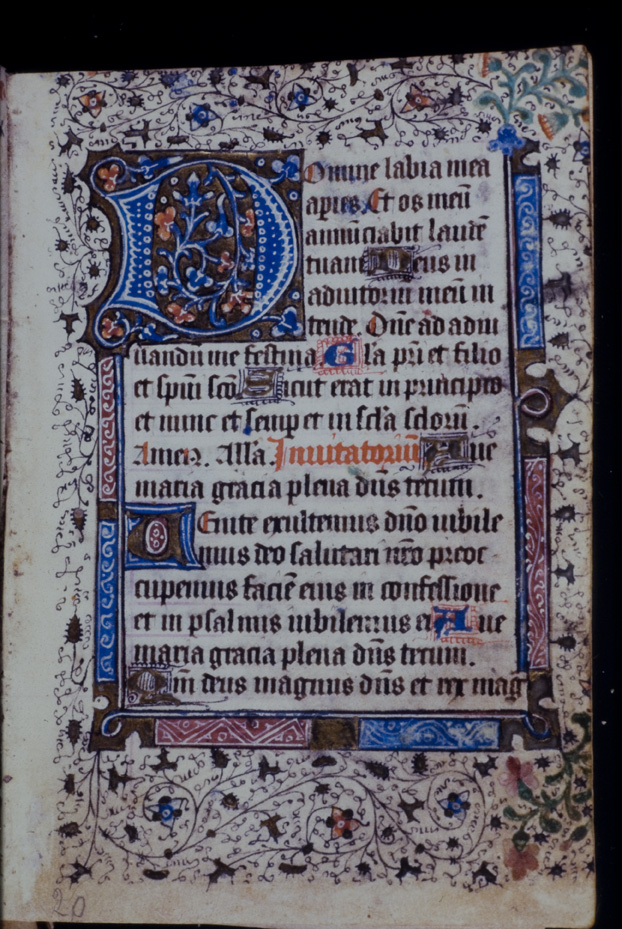 Domine labia mea
apries. Et os meū
annūciabit laudē
tuam Deus in
adiutoriū meū in
tende. Dn̄e ad adiu
uandu me festina Gla pri et filio
et spiui sco Sicut erat in principio
et nunc et semp et in scl̄a sclorū.
Amen. Alla Inuitatoriū Aue
maria gracia plena dn̄s tecum.
Uenite exultemus dn̄o iubile
mus deo salutari nr̄o preoc
cupemus faciē eius in confessione
et in psalmis iubilemus ei Aue
maria gracia plena dn̄s tecum.
Qm̄ deus magnus dn̄s et rex mag
20